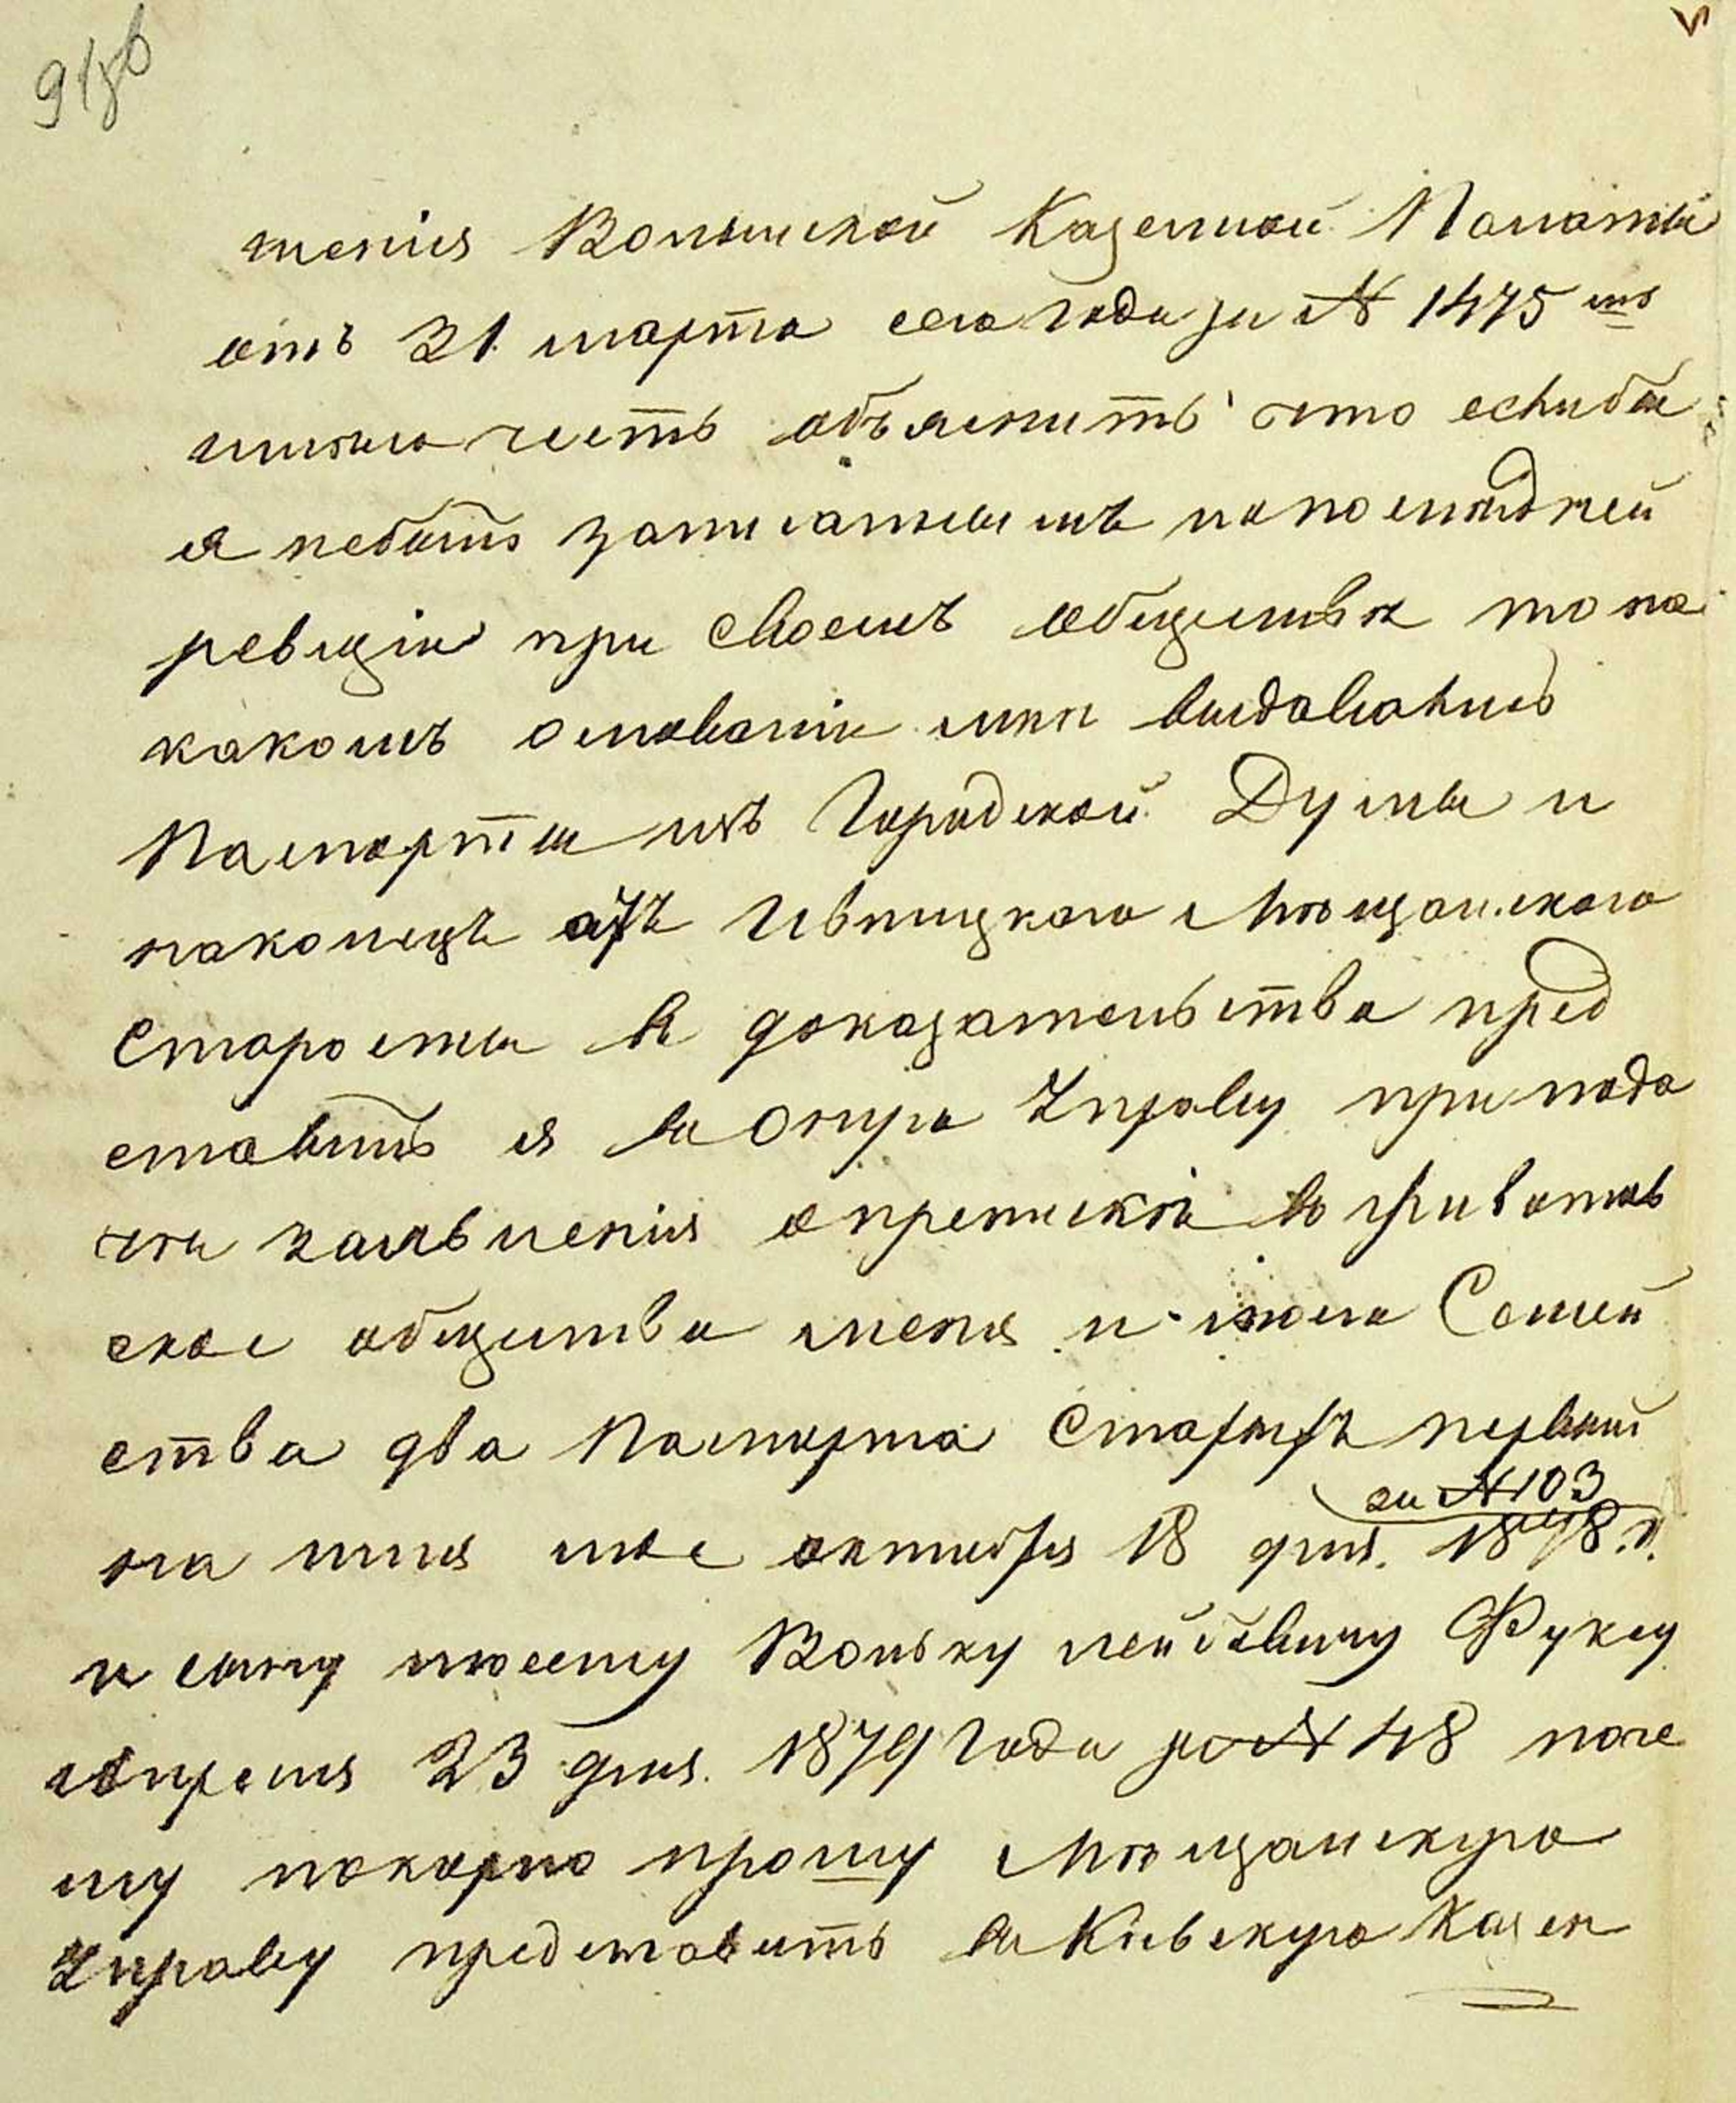 шенія Волынской Казенной Палаты
отъ 21 марта сего года за № 1475 мъ
имѣю честь объяснить что еслибы
я небылъ записаннымъ по послѣдней
ревизіи при своемъ обществѣ то на
какомъ основаніи мнѣ выдавались
Паспорты изъ Городской Думы и
наконецъ отъ Ивницкаго Мѣщанскаго
Старосты въ доказательство пред
ставилъ я въ Управу при пода
чи заявленія о пр въ
ское общество меня и моего Семей
ства два Паспорта Старыхъ первый
за № 103
на имя мое октября 18 дня 1878 г.
и сыну моему Вольку Лейбовичу Фуксу
апреля 23 дня 1879 года за № 48 поче
му покорно прошу Мѣщанскую
Управу представить въ Кіевскую Казен